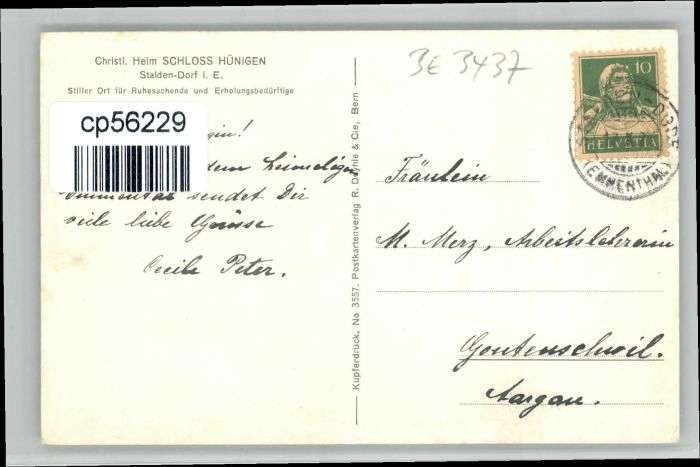 Christl. Heim SCHLOSS HÜNIGEN
Stalden-Dorf i. E.
Stiller Ort für Ruhesuchende und Erholungsbedürftige
cp56229
dem heimeligen
Emmental sendet Dir
viele liebe Grüsse
Cecile Peter.
Kupferdruck. No 3557. Postkartenverlag R. Deyhle & Cie, Bern
BE 3437
10
HELVETIA
(EMMENTHAL)
Fräulein
M. Merz, Arbeitslehrerin
Gontenschwil.
Aargau.